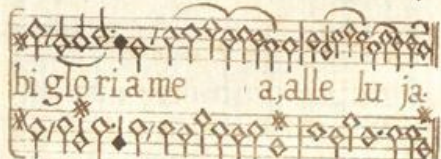 bi glo ri a me a, alle lu ja.